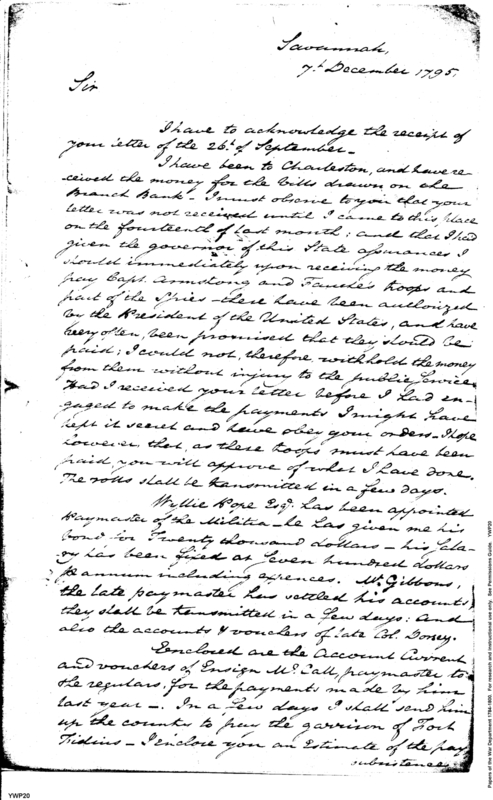 Savannah,
7th December 1795.
Sir
I have to acknowledge the receipt of
your letter of the 26th of September—
I have been to Charleston, and have re-
ceived the money for the bills drawn on the
Branch Bank — I must observe to you that your
letter was not received until I came to this place
on the fourteenth of last month; and that I had
given the governor of this State assurances I
should immediately upon receiving the money
pay Capt. Armstong and Fauche's troops and
part of the Spies — these have been authorized
by the President of the United States, and have
very often, been promised that they should be
paid; I could not, therefore, withhold the money
from them without injury to the public service
Had I received your letter before I had en-
gaged to make the payments I might have
kept it secret and have obey your orders — I hope
however, that, as these troops must have been
paid, you will approve of what I have done.
The rolls shall be transmitted in a few days.
Wyllie Pope Esqr. has been appointed
Paymaster of the Militia — he has given me his
bond for Twenty thousand dollars — his sala-
ry has been fixed at seven hundred dollars
annum including expences. Mr. Gibbons,
the late paymaster has settled his accounts
they shall be transmitted in a few days; and
also the accounts & vouchers of late Col. Dorsey.
Eenclosed are the Account Current
and vouchers of Ensign Mc.Call, paymaster to
the regulars, for the payments made by him
last year —. In a few days I shall send him
up the country to pay the garrison of Fort
Fidius — I enclose you an Estimate of the pay,
subsistence
YWP20
Papers of the War Department 1784-1800. For research and instructional use only. See Permissions Guide. YWP20